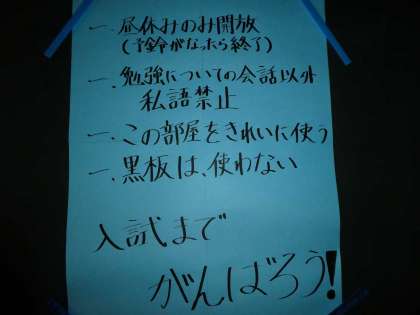 一.昼休みのみ開放
(予鈴がなったら終了)
一.勉強についての会話以外
私語禁止
一.この部屋をきれいに使う
一.黒板は、使わない
入試まで
がんばろう!